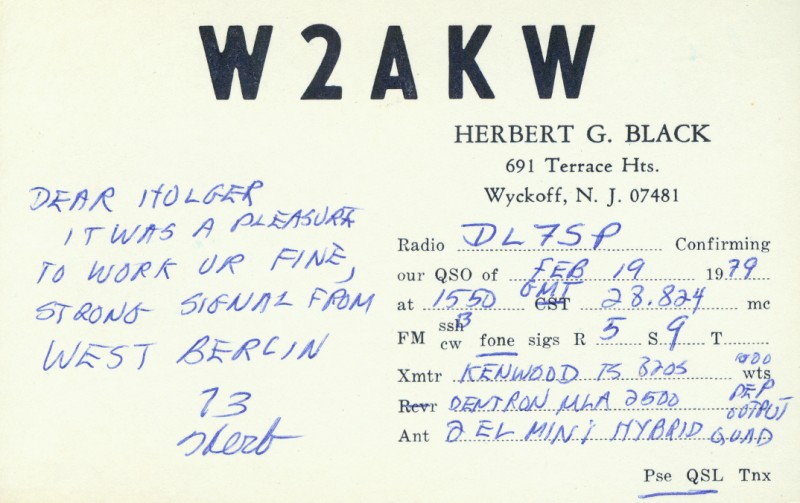 W2AKW
HERBERT G. BLACK
691 Terrace Hts.
Wyckoff, N. J. 07481
DEAR HOLGER
IT WAS A PLEASURE
TO WORK UR FINE,
STRONG SIGNAL FROM
WEST BERLIN
73
Herb
Radio DL7SP Confirming
our QSO of FEB 19 1979
at 1550 GMT CST 28.824 mc
FM ssb cw fone sigs R 5 S 9 T
Xmtr KENWOOD TS 820S wts
Rcvr DENTRON MLA 2500 PEP OUTPUT
Ant 2 EL MINI HYBRID QUAD
Pse QSL Tnx